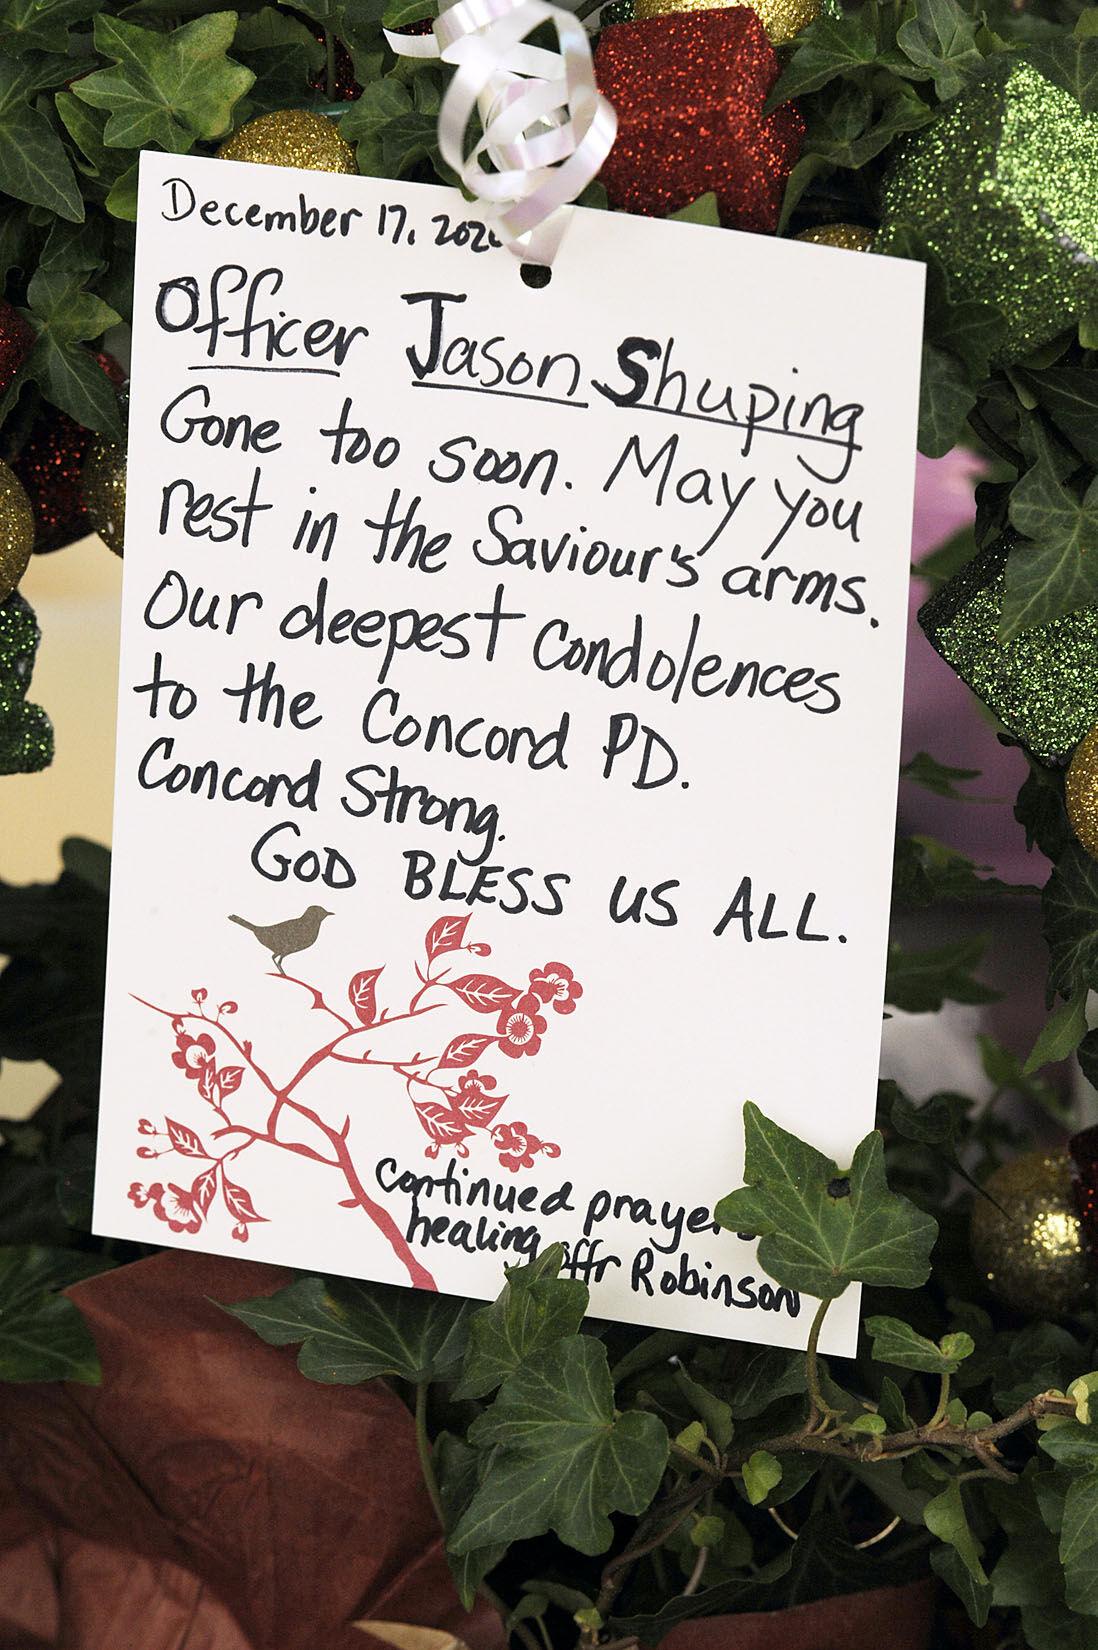 December 17, 202
Officer Jason Shuping
Gone too soon. May you
rest in the Saviour's arms.
Our deepest condolences
to the Concord PD.
Concord Strong.
GOD BLESS US ALL.
continued prayers
healing offr Robinson